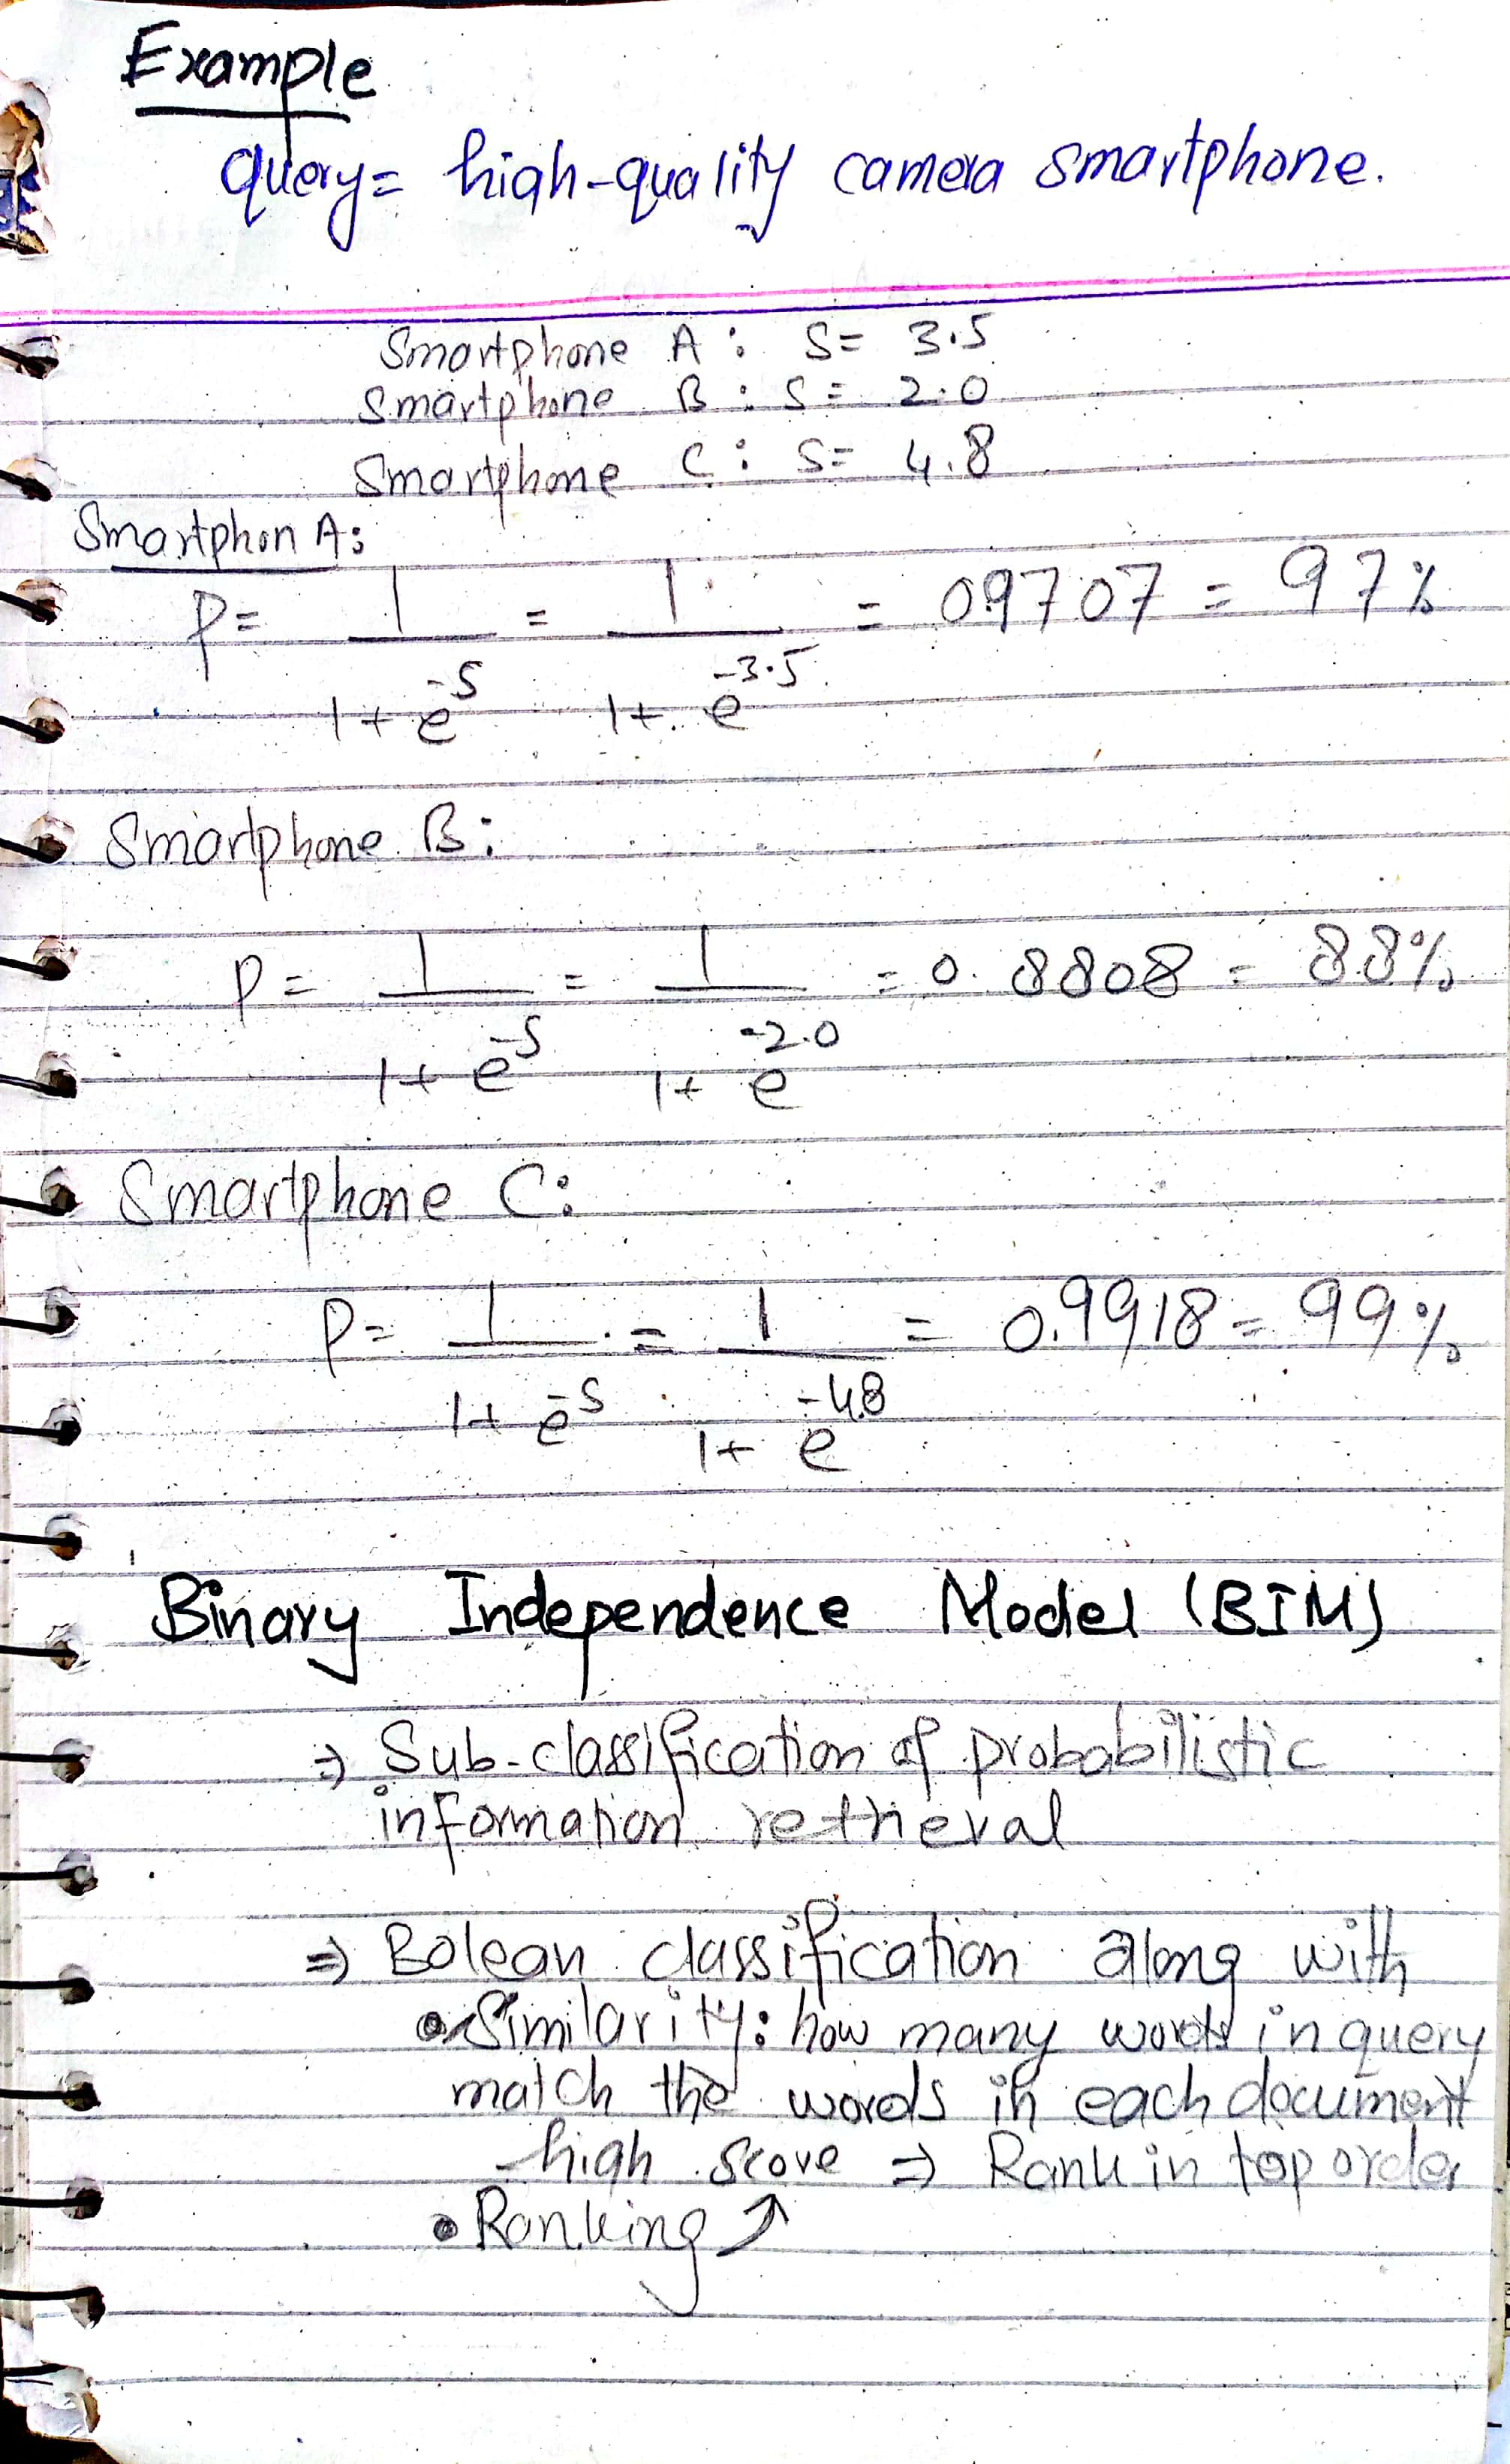 Example
query= high-quality camera smartphone.
Smartphone A : S= 3.5
Smartphone B : S= 2.0
Smartphone C : S= 4.8
Smartphon A:
P= 1/(1+e^-S) = 1/(1+e^-3.5) = 0.9707 = 97%
Smartphone B:
P= 1/(1+e^-S) = 1/(1+e^-2.0) = 0.8808 = 88%
Smartphone C:
P= 1/(1+e^-S) = 1/(1+e^-4.8) = 0.9918 = 99%
Binary Independence Model (BIM)
⇒ Sub-classification of probabilistic
information retrieval
⇒ Bolean classification along with
• Similarity: how many words in query
match the words in each document
high score ⇒ Rank in top order
• Ranking ↗